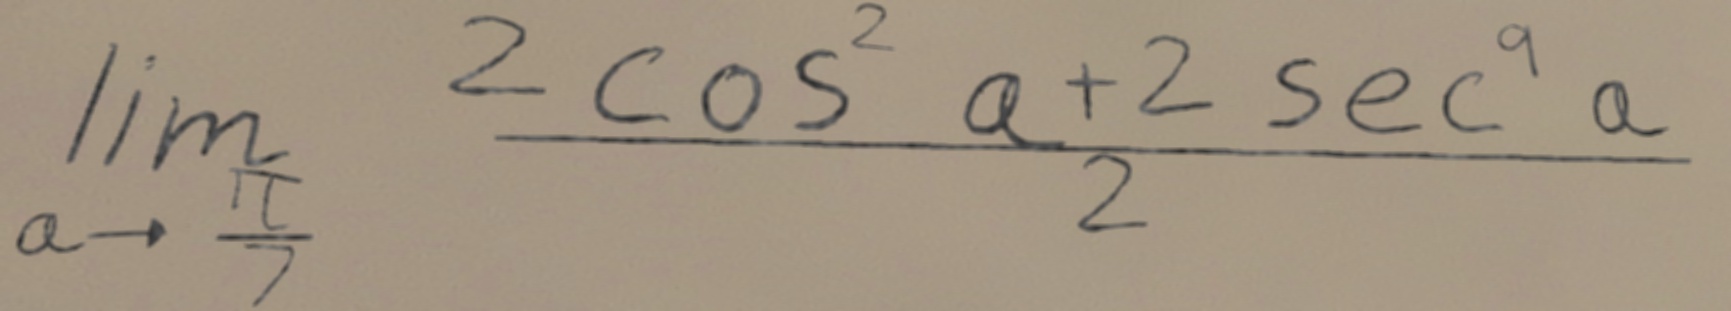 \lim_{a \to \frac{\pi}{7}} \frac{2 \cos^2 a + 2 \sec^9 a}{2}